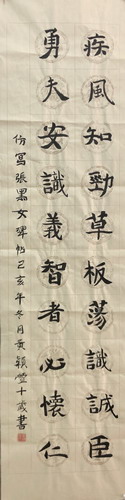 疾風知勁草板蕩識誠臣
勇夫安識義智者必懷仁
仿寫張黑女碑帖己亥年冬月黃穎瑩十歲書